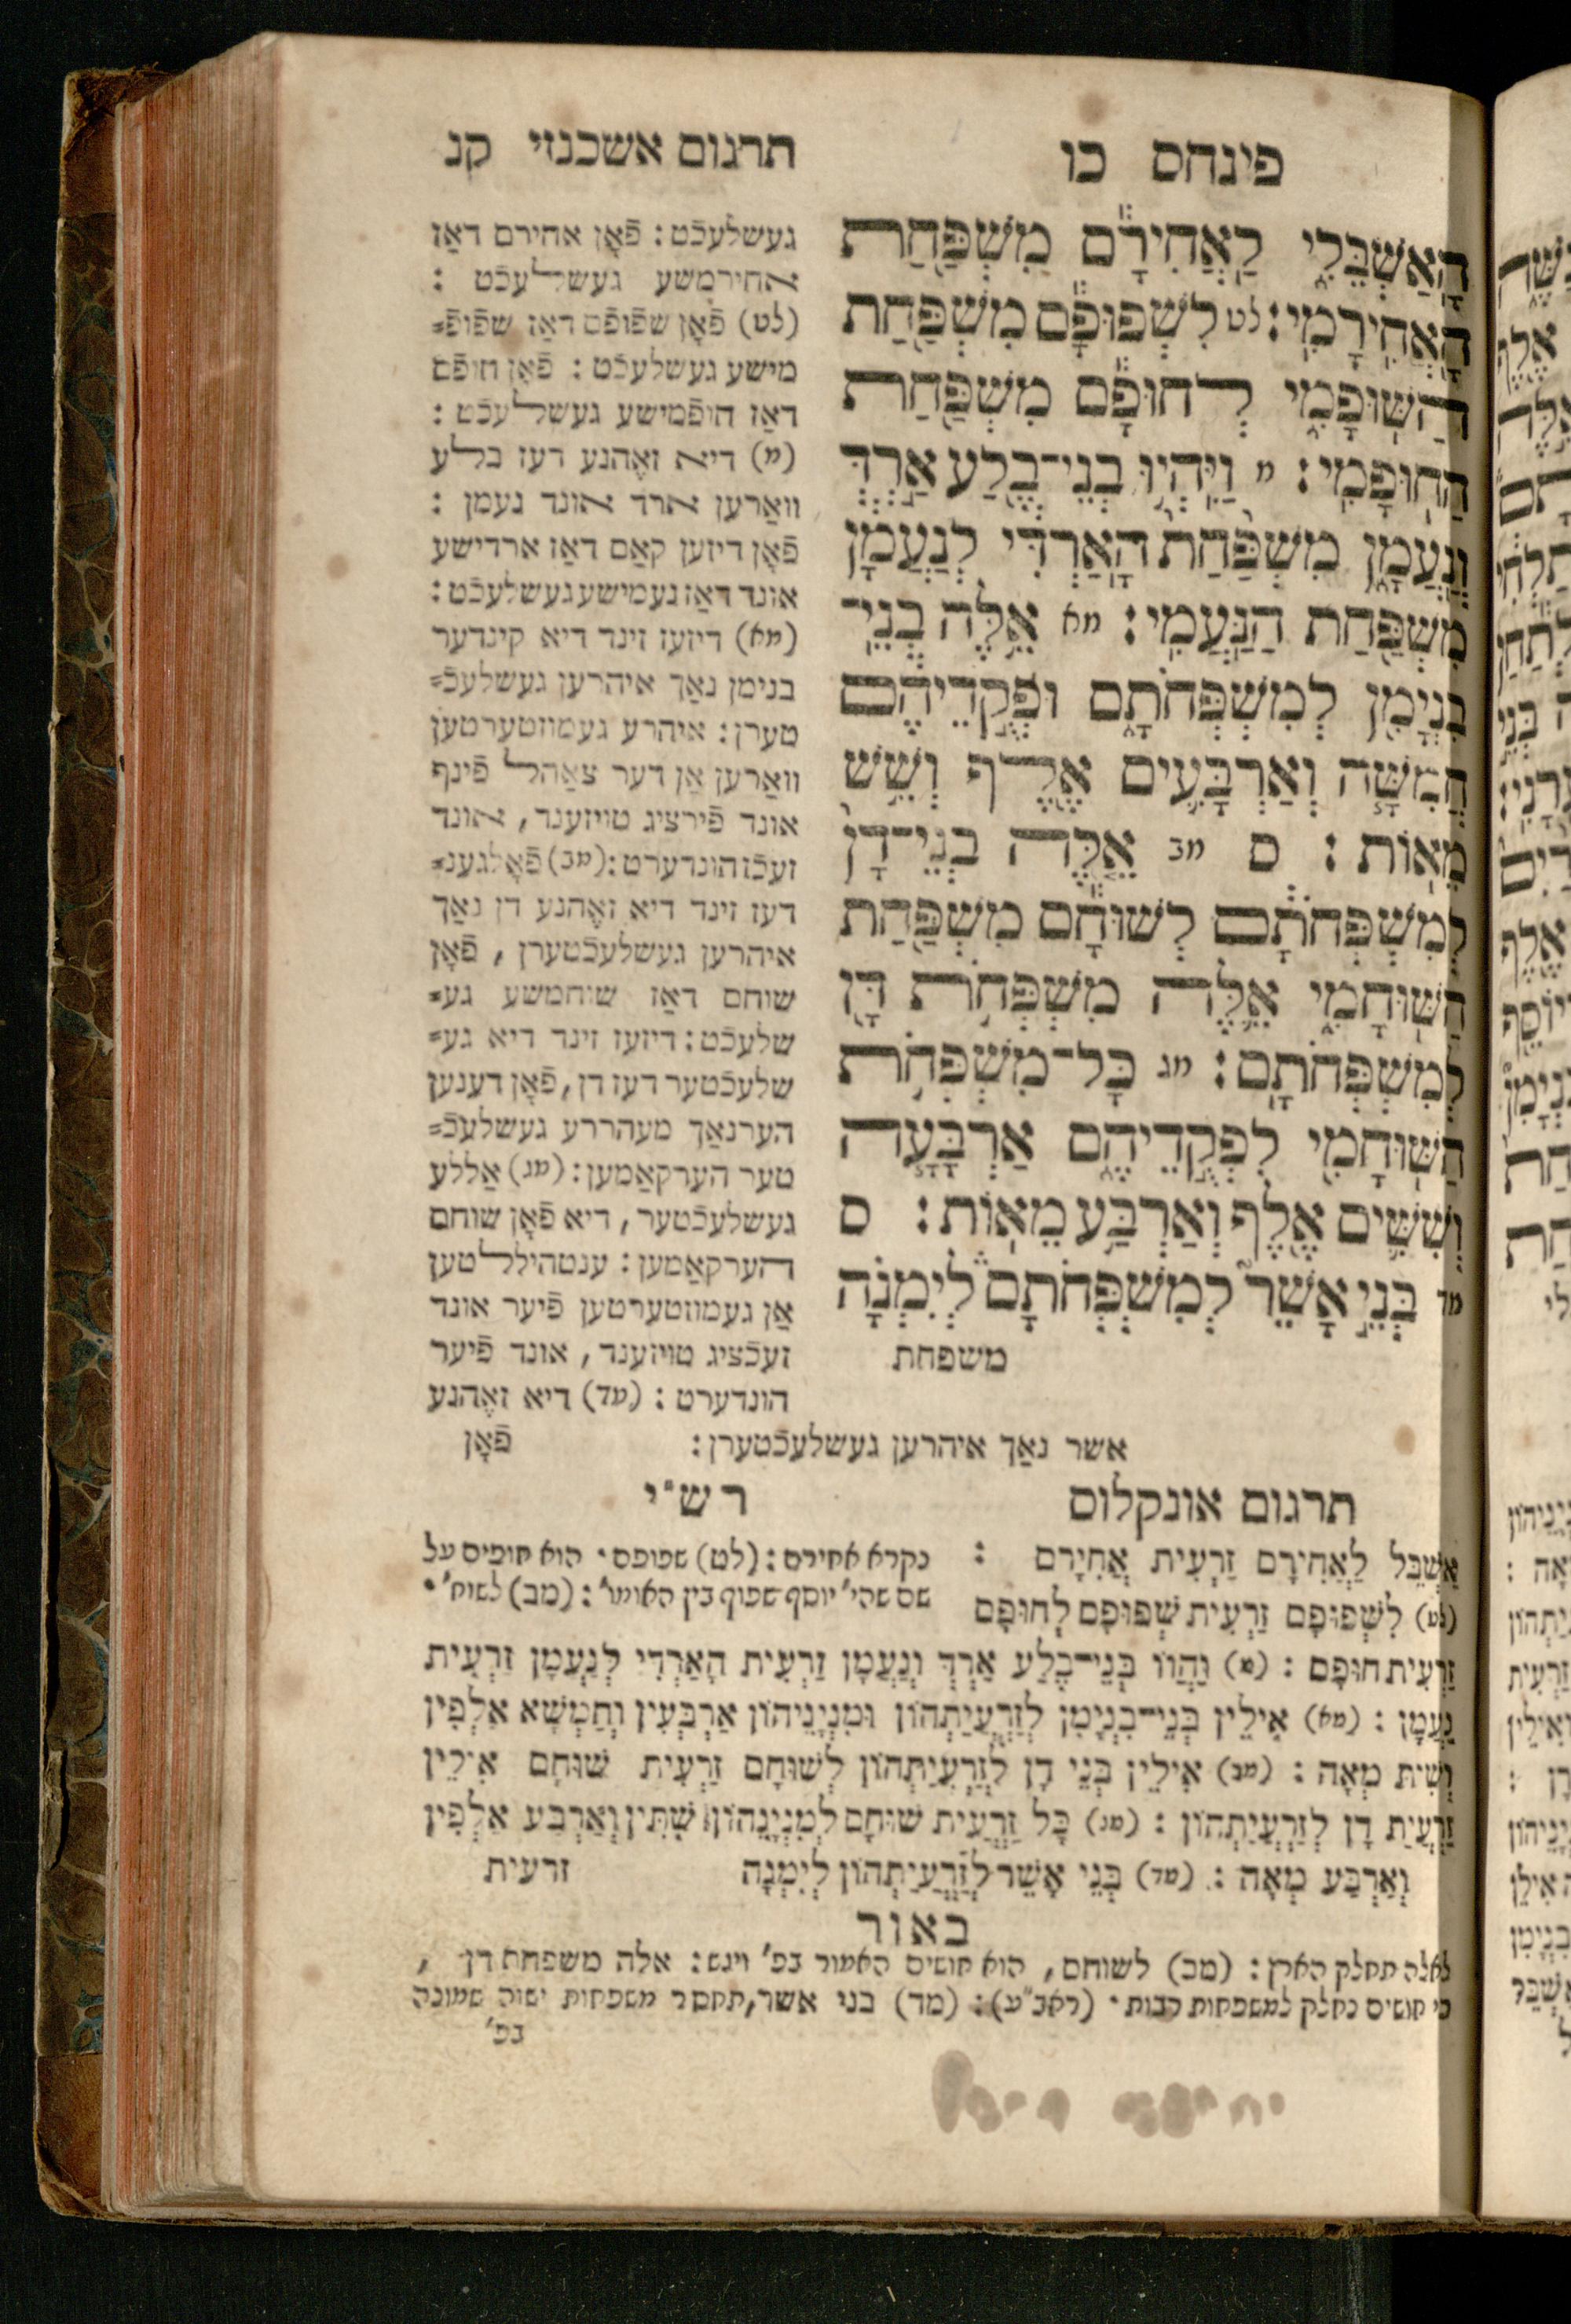 פינחס כו
תרגום אשכנזי קנ
הָאַשְׁבֵּלִ֑י לַאֲחִירָ֕ם מִשְׁפַּ֖חַת
הָאֲחִירָמִֽי: לט לִשְׁפוּפָ֕ם מִשְׁפַּ֖חַת
הַשּׁוּפָמִ֑י לְחוּפָ֕ם מִשְׁפַּ֖חַת
הַחוּפָמִֽי: מ וַיִּהְי֥וּ בְנֵי־בֶ֖לַע אַ֣רְדְּ
וְנַעֲמָ֑ן מִשְׁפַּ֙חַת֙ הָֽאַרְדִּ֔י לְנַ֣עֲמָ֔ן
מִשְׁפַּ֖חַת הַנַּֽעֲמִֽי: מא אֵ֥לֶּה בְנֵֽי־
בִנְיָמִ֖ן לְמִשְׁפְּחֹתָ֑ם וּפְקֻ֣דֵיהֶ֔ם
חֲמִשָּׁ֧ה וְאַרְבָּעִ֛ים אֶ֖לֶף וְשֵׁ֥שׁ
מֵאֽוֹת: ס מב אֵ֤לֶּה בְנֵי־דָן֙
לְמִשְׁפְּחֹתָ֔ם לְשׁוּחָ֕ם מִשְׁפַּ֖חַת
הַשּׁוּחָמִ֑י אֵ֛לֶּה מִשְׁפְּחֹ֥ת דָּ֖ן
לְמִשְׁפְּחֹתָֽם: מג כָּל־מִשְׁפְּחֹ֥ת
הַשּׁוּחָמִ֖י לִפְקֻדֵיהֶ֑ם אַרְבָּעָ֧ה
וְשִׁשִּׁ֛ים אֶ֖לֶף וְאַרְבַּ֥ע מֵאֽוֹת: ס
מד בְּנֵ֣י אָשֵׁר֮ לְמִשְׁפְּחֹתָם֒ לְיִמְנָ֗ה
משפחת
געשלעכֿט: פֿאָן אחירם דאַז
אחירמשע געשלעכֿט :
(לט) פֿאָן שפֿופֿם דאַז שפֿופֿ=
מישע געשלעכֿט : פֿאָן חופֿם
דאַז חופֿמישע געשלעכֿט :
(מ) דיא זאֶהנע דעז בלע
וואַרען ארד אונד נעמן :
פֿאָן דיזען קאַם דאַז ארדישע
אונד דאַז נעמישע געשלעכֿט:
(מא) דיזעז זינד דיא קינדער
בנימן נאַך איהרען געשלעכֿ=
טערן: איהרע געמוזטערטען
וואַרען אַן דער צאַהל פֿינף
אונד פֿירציג טויזענד, אונד
זעכֿזהונדערט: (מב) פֿאָלגענ=
דעז זינד דיא זאֶהנע דן נאַך
איהרען געשלעכֿטערן, פֿאָן
שוחם דאַז שוחמשע גע=
שלעכֿט: דיזעז זינד דיא גע=
שלעכֿטער דעז דן, פֿאָן דענען
הערנאַך מעהררע געשלעכֿ=
טער הערקאַמען: (מג) אַללע
געשלעכֿטער, דיא פֿאָן שוחם
הערקאַמען: ענטהילטען
אַן געמוזטערטען פֿיער אונד
זעכֿציג טויזענד, אונד פֿיער
הונדערט : (מד) דיא זאֶהנע
אשר נאַך איהרען געשלעכֿטערן: פֿאָן
תרגום אונקלוס
אַשְׁבֵּל לַאֲחִירָם זַרְעִית אֲחִירָם :
(לט) לִשְׁפוּפָם זַרְעִית שְׁפוּפָם לְחוּפָם
זַרְעִית חוּפָם : (מ) וַהֲווֹ בְּנֵי־בֶלַע אַרְדְּ וְנַעֲמָן זַרְעִית הָאַרְדִּי לְנַעֲמָן זַרְעִית
נַעֲמָן : (מא) אִילֵין בְּנֵי־בִנְיָמִן לְזַרְעֲיַתְהוֹן וּמִנְיָנֵיהוֹן אַרְבְּעִין וְחַמְשָׁא אַלְפִין
וְשִׁית מְאָה : (מב) אִילֵין בְּנֵי דָן לְזַרְעֲיַתְהוֹן לְשׁוּחָם זַרְעִית שׁוּחָם אִילֵין
זַרְעֲיַת דָן לְזַרְעֲיַתְהוֹן : (מג) כָּל זַרְעֲיַת שׁוּחָם לְמִנְיָנֵהוֹן שִׁתִּין וְאַרְבַּע אַלְפִין
וְאַרְבַּע מְאָה : (מד) בְּנֵי אָשֵׁר לְזַרְעֲיַתְהוֹן לְיִמְנָה זרעית
רש"י
נקרא אחירם: (לט) שפופם. הוא מופים על
שם שהי' יוסף שפוף בין האומו': (מב) לשוח'.
באור
לאלה תחלק הארץ: (מב) לשוחם, הוא חושים האמור בפ' ויגש: אלה משפחת דן,
כי חושים נחלק למשפחות רבות. (ראב"ע): (מד) בני אשר, תחסר משפחות ישוה שמונה
בפ'